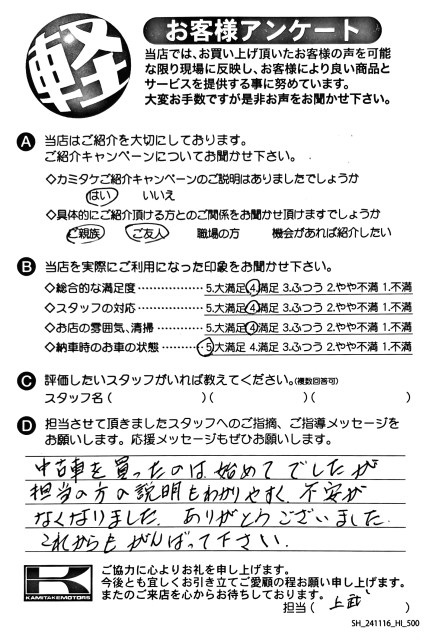 軽
お客様アンケート
当店では、お買い上げ頂いたお客様の声を可能
な限り現場に反映し、お客様により良い商品と
サービスを提供する事に努めています。
大変お手数ですが是非お声をお聞かせ下さい。
A 当店はご紹介を大切にしております。
ご紹介キャンペーンについてお聞かせ下さい。
◇カミタケご紹介キャンペーンのご説明はありましたでしょうか
はい いいえ
◇具体的にご紹介頂ける方とのご関係をお聞かせ頂けますでしょうか
ご親族 ご友人 職場の方 機会があれば紹介したい
B 当店を実際にご利用になった印象をお聞かせ下さい。
◇総合的な満足度 ............... 5.大満足 4.満足 3.ふつう 2.やや不満 1.不満
◇スタッフの対応 ............... 5.大満足 4.満足 3.ふつう 2.やや不満 1.不満
◇お店の雰囲気、清掃 ......... 5.大満足 4.満足 3.ふつう 2.やや不満 1.不満
◇納車時のお車の状態 ......... 5.大満足 4.満足 3.ふつう 2.やや不満 1.不満
C 評価したいスタッフがいれば教えてください。(複数回答可)
スタッフ名 ( )( )( )
D 担当させて頂きましたスタッフへのご指摘、ご指導メッセージを
お願いします。応援メッセージもぜひお願いします。
中古車を買ったのは始めてでしたが
担当の方の説明もわかりやすく、不安が
なくなりました。ありがとうございました。
これからもがんばって下さい。
K
KAMITAKEMOTORS
ご協力に心よりお礼を申し上げます。
今後とも宜しくお引き立てご愛顧の程お願い申し上げます。
またのご来店を心からお待ちしております。
担当 ( 上武 )
SH_241116_HI_500